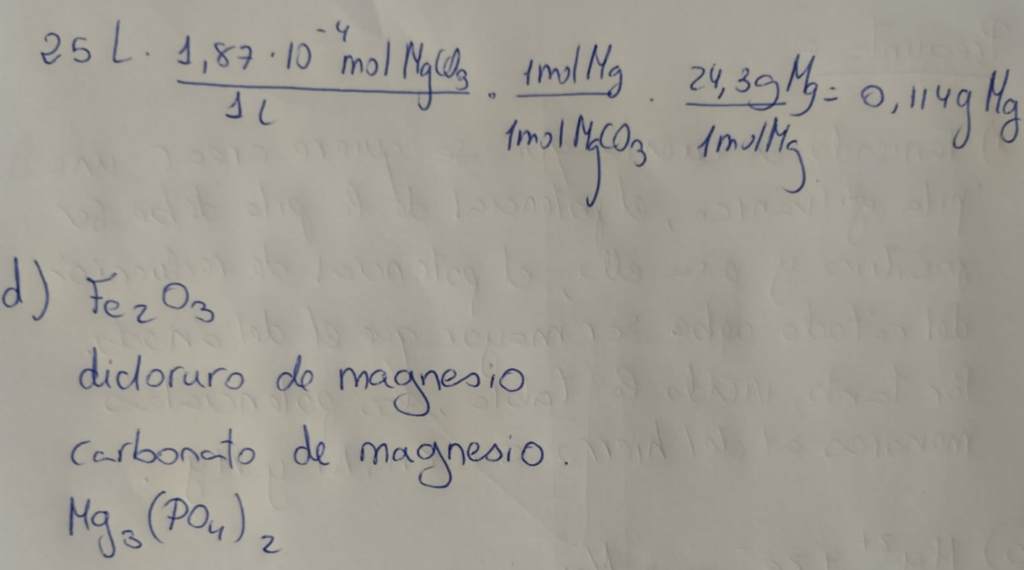 25 L · 1,87·10⁻⁴ mol MgCO₃ / 1 L · 1 mol Mg / 1 mol MgCO₃ · 24,3 g Mg / 1 mol Mg = 0,114 g Mg
d) Fe₂O₃
dicloruro de magnesio
carbonato de magnesio.
Mg₃(PO₄)₂